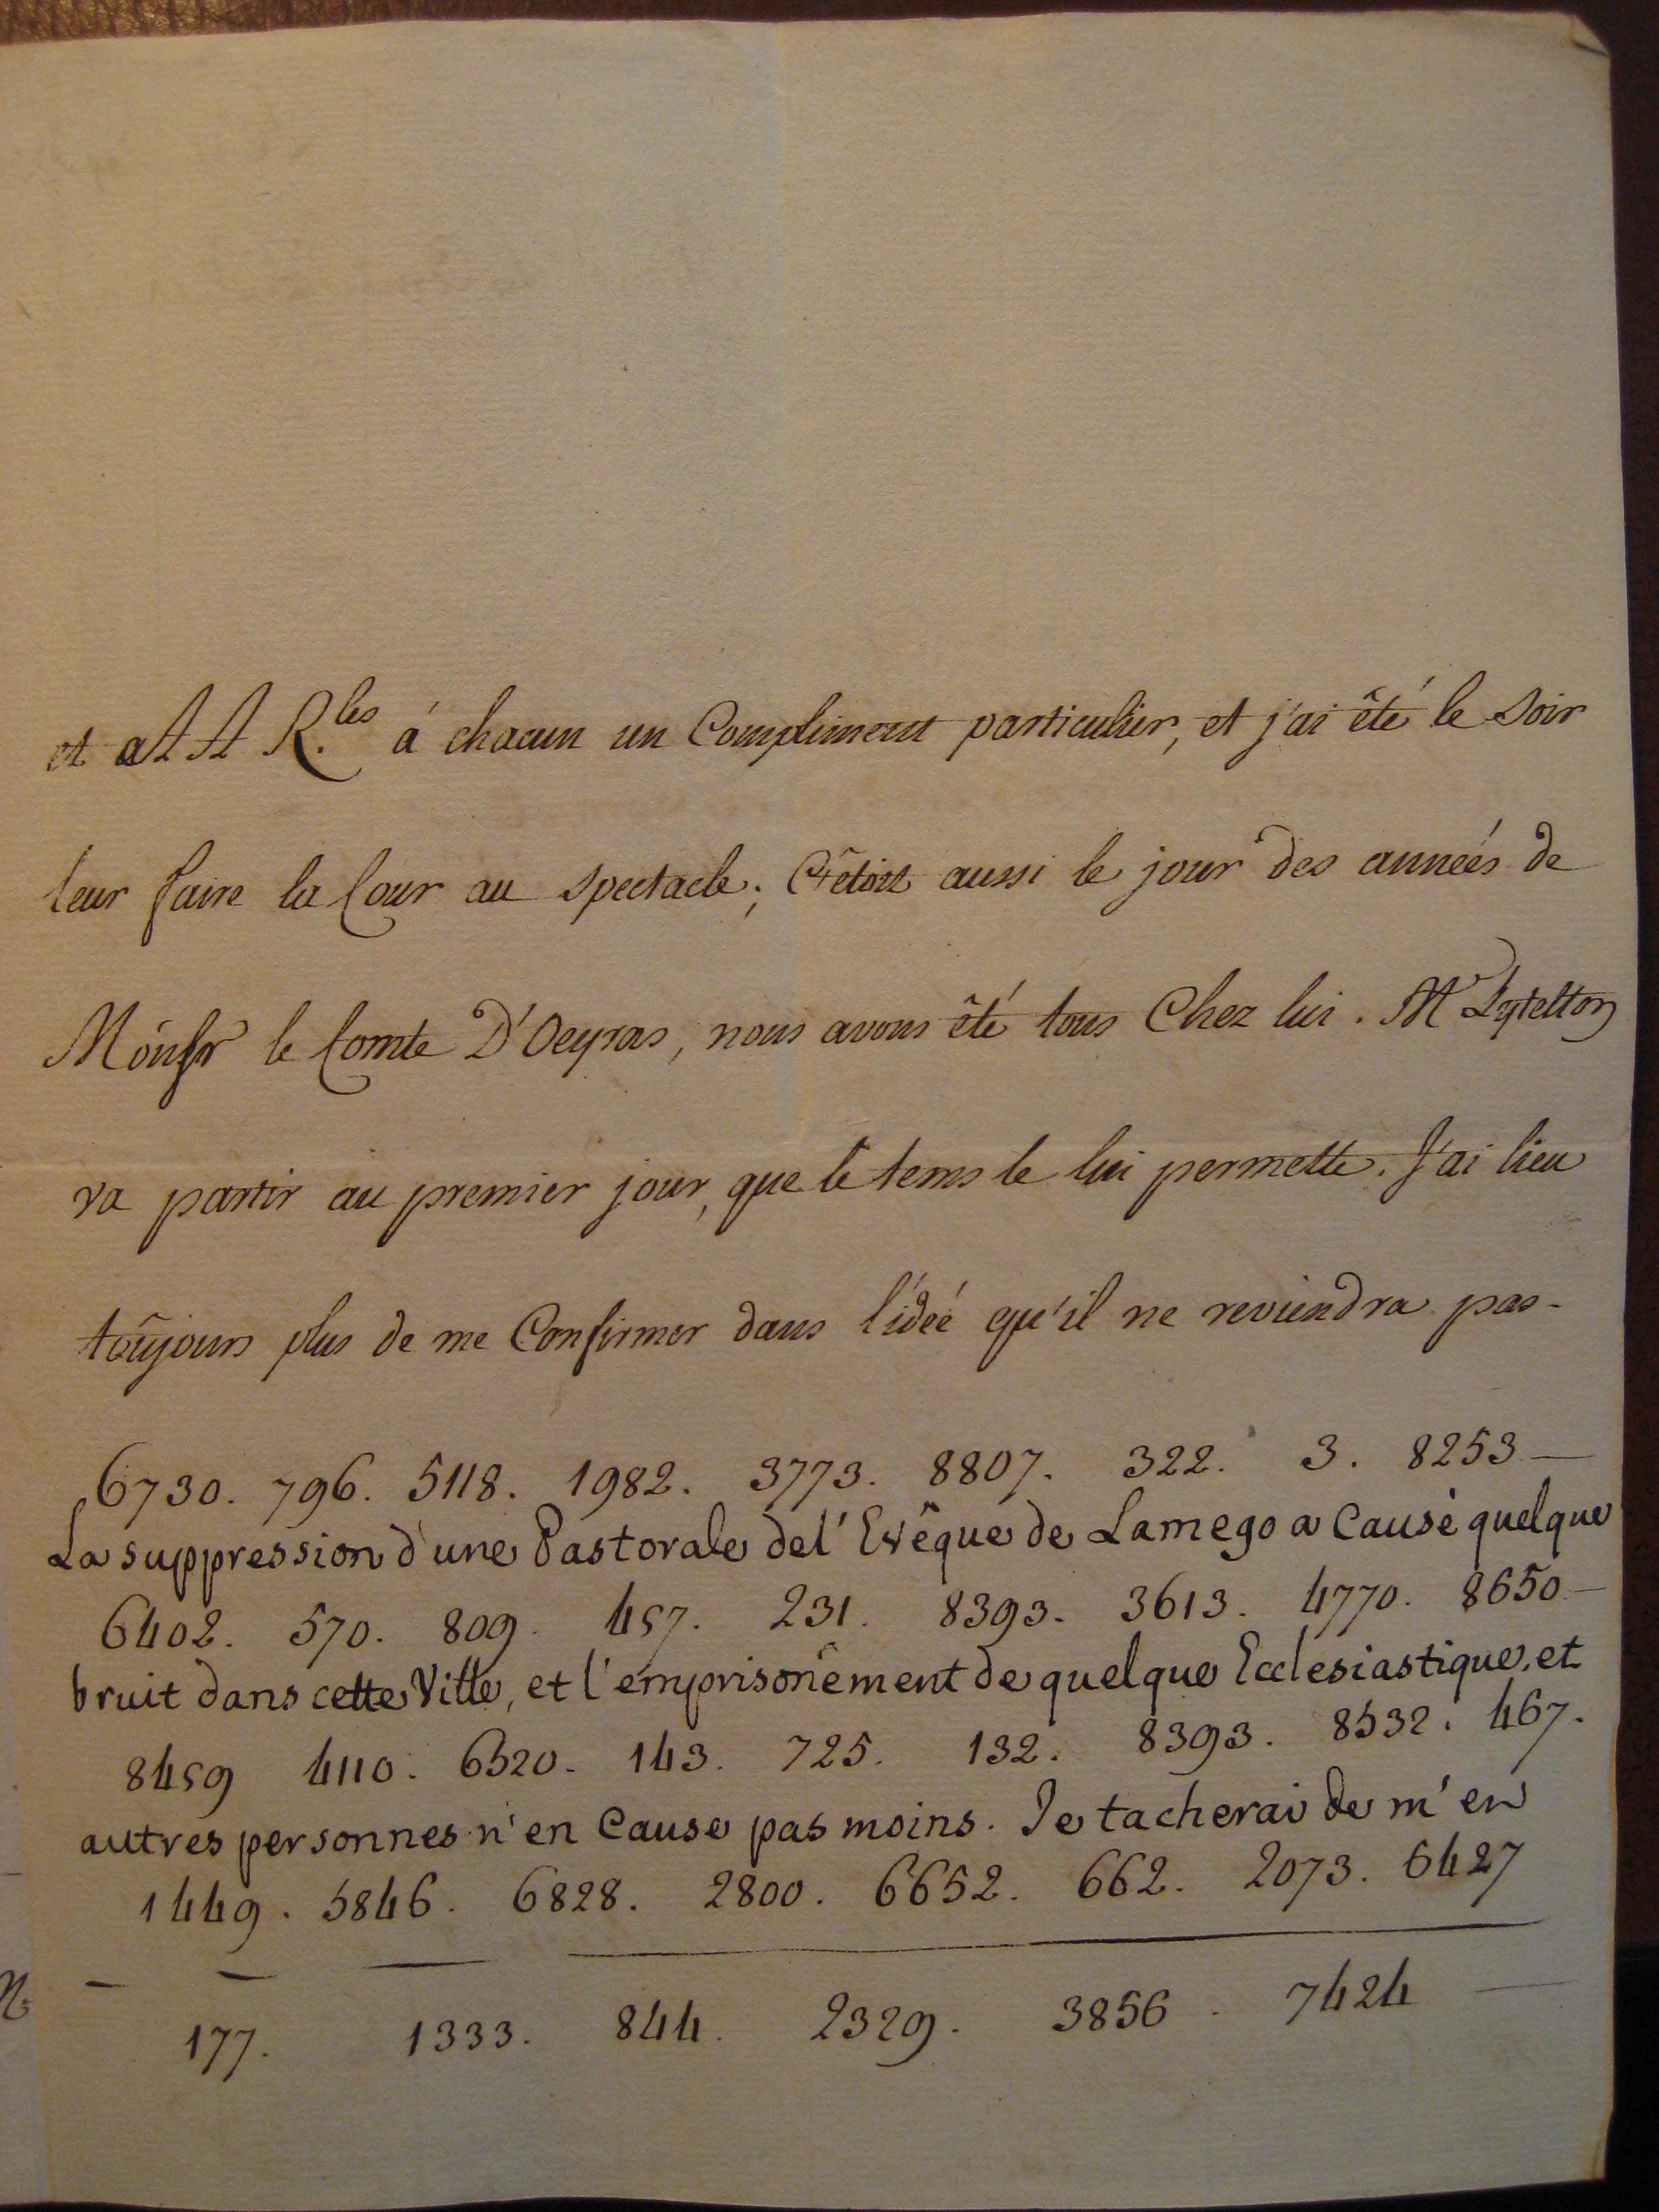 et AA R.les á chacun un Compliment particulier, et j'ai êté le Soir
leur faire la Cour au Spectacle; C'êtoit aussi le jour des années de
Monsr le Comte D'Oeyras, nous avons êté tous Chez lui. Mr Lytelton
va partir au premier jour, que le tems le lui permette. J'ai lieu
toûjours plus de me Confirmer dans l'ideé qu'il ne reviendra pas-
6730. 796. 5118. 1982. 3773. 8807. 322. 3. 8253 —
La suppression d'une Pastorale del' Evêque de Lamego a Causé quelque
6402. 570. 809. 457. 231. 8393. 3613. 4770. 8650 —
bruit dans cette Ville, et l'emprisonement de quelque Ecclesiastique, et
8459 4110. 6520. 143. 725. 132. 8393. 8532. 467.
autres personnes n'en Cause pas moins. Je tacherai de m'en
1449. 5846. 6828. 2800. 6652. 662. 2073. 6427
177. 1333. 844. 2329. 3856. 7424 —